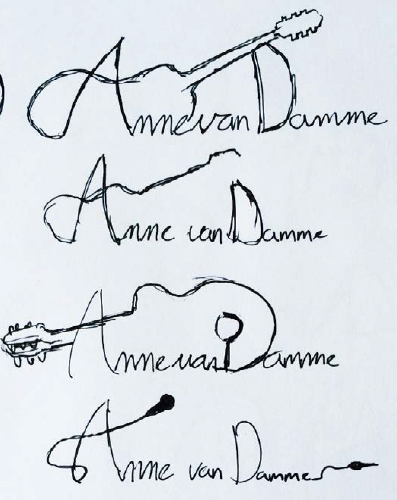 Anne van Damme
Anne van Damme
Anne van Damme
Anne van Damme